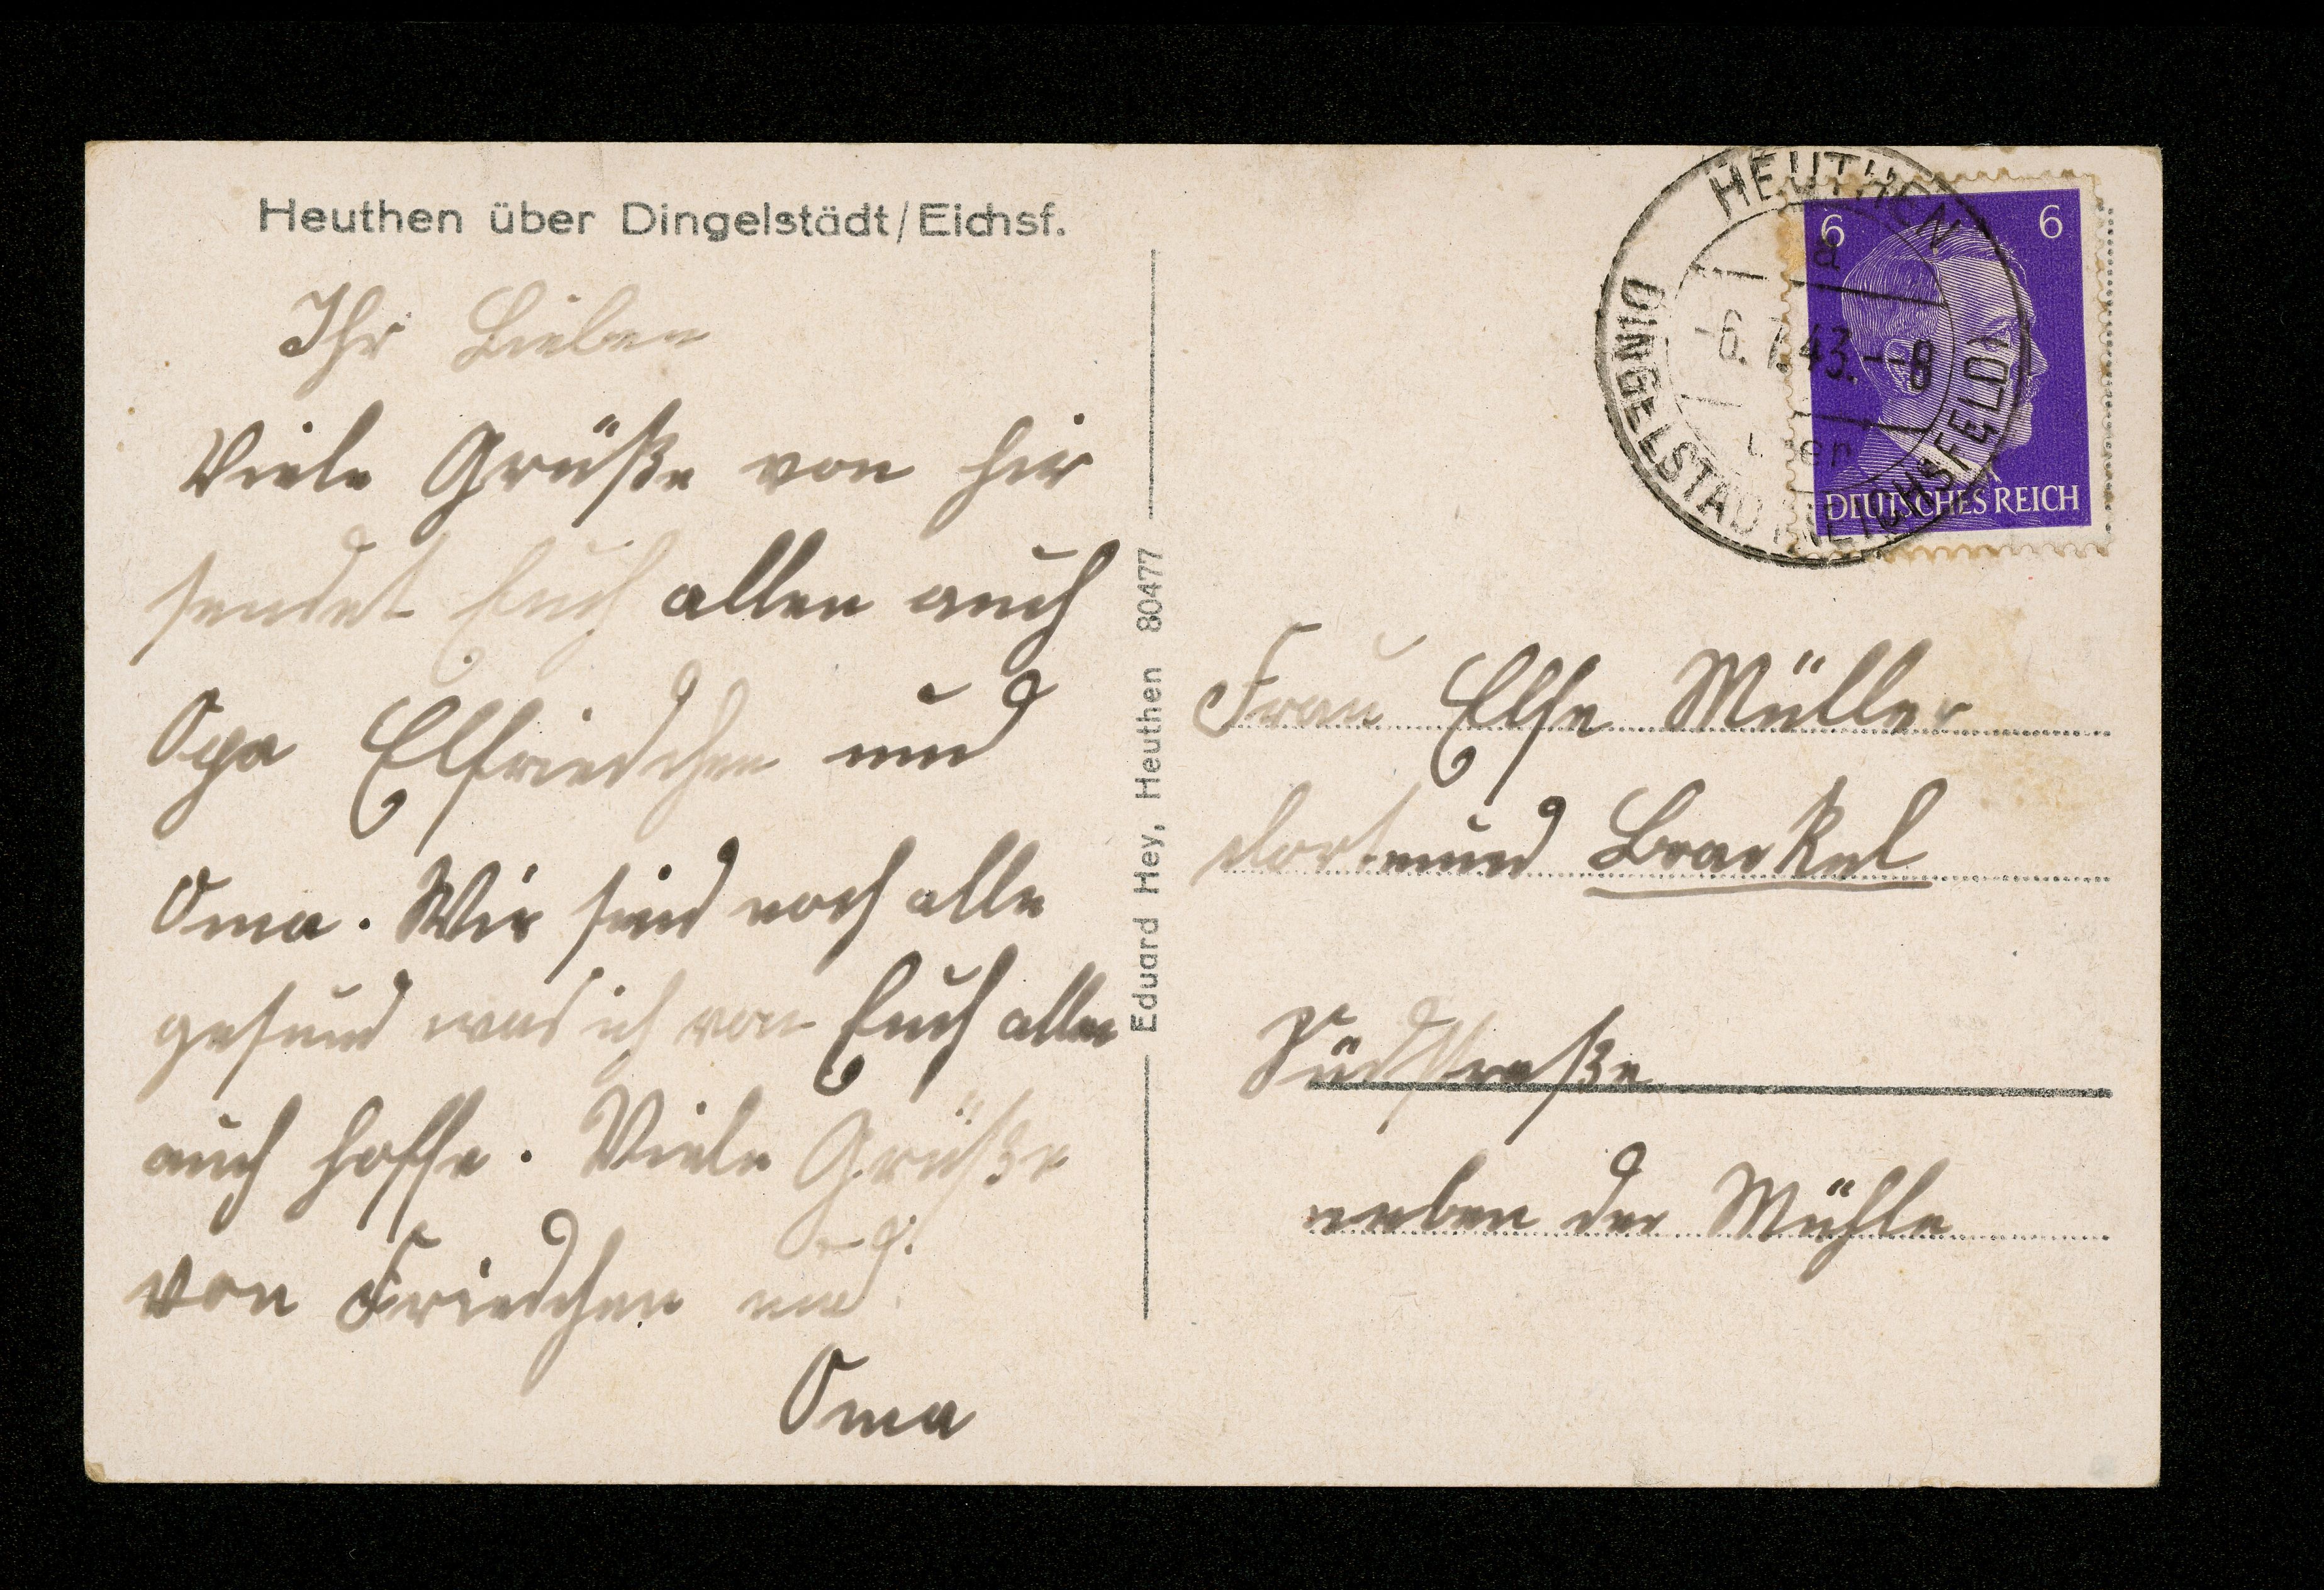 Heuthen über Dingelstädt/Eichsf.
Ihr Lieben
Viele Grüße von hir
sendet Euch allen auch
Opa Elfriedchen und
Oma. Wir sind noch alle
gesund was ich von Euch allen
auch hoffe. Viele Grüße
von Friedchen und
Oma
Eduard Hey, Heuthen 80477
HEUTHEN
a
-6.7.43.--8
über
DINGELSTÄDT (EICHSFELD)
6 6
DEUTSCHES REICH
Frau Else Müller
dortmund Brackel
Südstraße
neben der Mühle